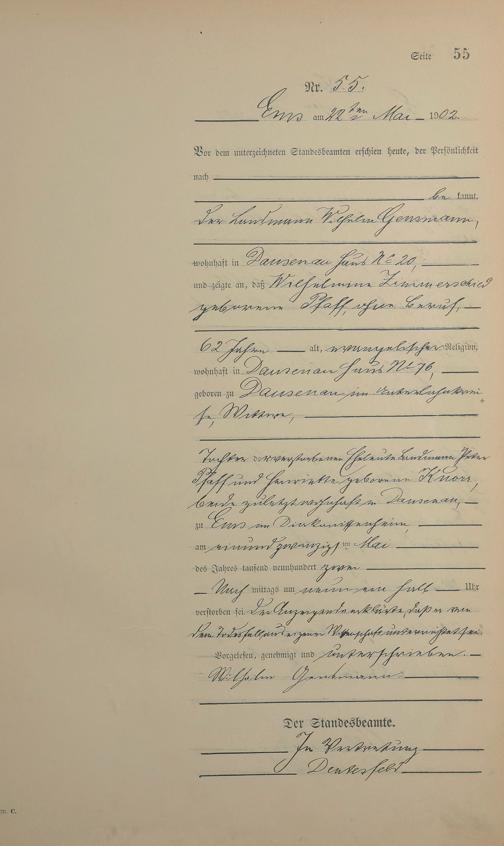 Seite 55
Nr. 55.
Ems am 22ten Mai 1902.
Vor dem unterzeichneten Standesbeamten erschien heute, der Persönlichkeit
nach
be kannt,
der Landmann Wilhelm
wohnhaft in Dausenau Haus No 20,
und zeigte an, daß Wilhelmine Zimmerschied
geborene Pfaff, ohne Beruf,
62 Jahre alt, evangelischer Religion,
wohnhaft in Dausenau Haus No 76,
geboren zu Dausenau im Unterlahnkrei-
se, Wittwe,
Tochter der verstorbenen Eheleute Landmann Peter
Pfaff und Henriette geborene Knorr,
beide zuletzt wohnhaft in Dausenau,
zu Ems im Diakonissenheim,
am einundzwanzigsten Mai
des Jahres tausend neunhundert zwei
Nach mittags um neun ein halb Uhr
verstorben sei. Der Anzeigende erklärte, daß er von
dem Todesfall aus eigener Wissenschaft unterrichtet sei.
Vorgelesen, genehmigt und unterschrieben.
Wilhelm
Der Standesbeamte.
In Vertretung
m. C.